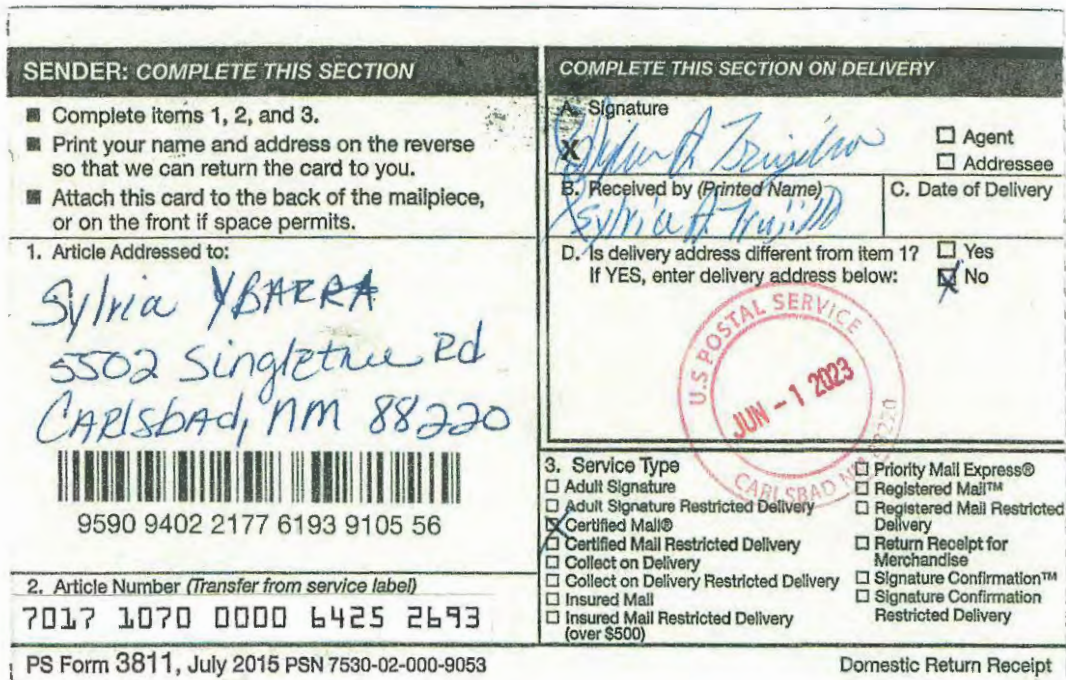 SENDER: COMPLETE THIS SECTION
■ Complete items 1, 2, and 3.
■ Print your name and address on the reverse
so that we can return the card to you.
■ Attach this card to the back of the mailpiece,
or on the front if space permits.
1. Article Addressed to:
Sylvia YBARRA
5502 Singletree Rd
CARlsbAd, NM 88220
9590 9402 2177 6193 9105 56
2. Article Number (Transfer from service label)
7017 1070 0000 6425 2693
COMPLETE THIS SECTION ON DELIVERY
A. Signature
X
☐ Agent
☐ Addressee
B. Received by (Printed Name)
Sylvia A Trujillo
C. Date of Delivery
D. Is delivery address different from item 1? ☐ Yes
If YES, enter delivery address below: ☒ No
U.S POSTAL SERVICE
JUN - 1 2023
CARLSBAD NM 88220
3. Service Type
☐ Adult Signature
☐ Adult Signature Restricted Delivery
☒ Certified Mail®
☐ Certified Mail Restricted Delivery
☐ Collect on Delivery
☐ Collect on Delivery Restricted Delivery
☐ Insured Mail
☐ Insured Mail Restricted Delivery
(over $500)
☐ Priority Mail Express®
☐ Registered Mail™
☐ Registered Mail Restricted
Delivery
☐ Return Receipt for
Merchandise
☐ Signature Confirmation™
☐ Signature Confirmation
Restricted Delivery
PS Form 3811, July 2015 PSN 7530-02-000-9053
Domestic Return Receipt